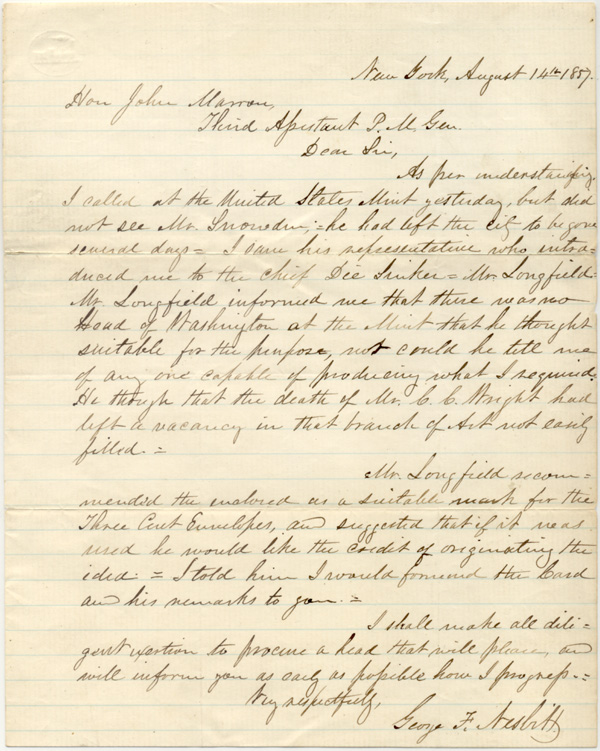 New York, August 14th 1857.
Hon John Marron,
Third Assistant P. M. Gen.
Dear Sir,
As per understanding,
I called at the United States Mint yesterday, but did
not see Mr. Snowden; = he had left the city to be gone
several days = I saw his representative who intro=
duced me to the chief Die Sinker = Mr. Longfield =
Mr. Longfield informed me that there was no
Head of Washington at the Mint that he thought
suitable for the purpose, nor could he tell me
of any one capable of producing what I required.
He though that the death of Mr. C. C. Wright had
left a vacancy in that branch of Art not easily
filled. =
Mr. Longfield recom=
mended the enclosed as a suitable mark for the
Three Cent Envelopes, and suggested that if it was
used he would like the credit of originating the
idea: = I told him I would forward the Card
and his remarks to you. =
I shall make all dili=
gent exertion to procure a head that will please, and
will inform you as early as possible how I progress. =
Very respectfully,
George F. Nesbitt